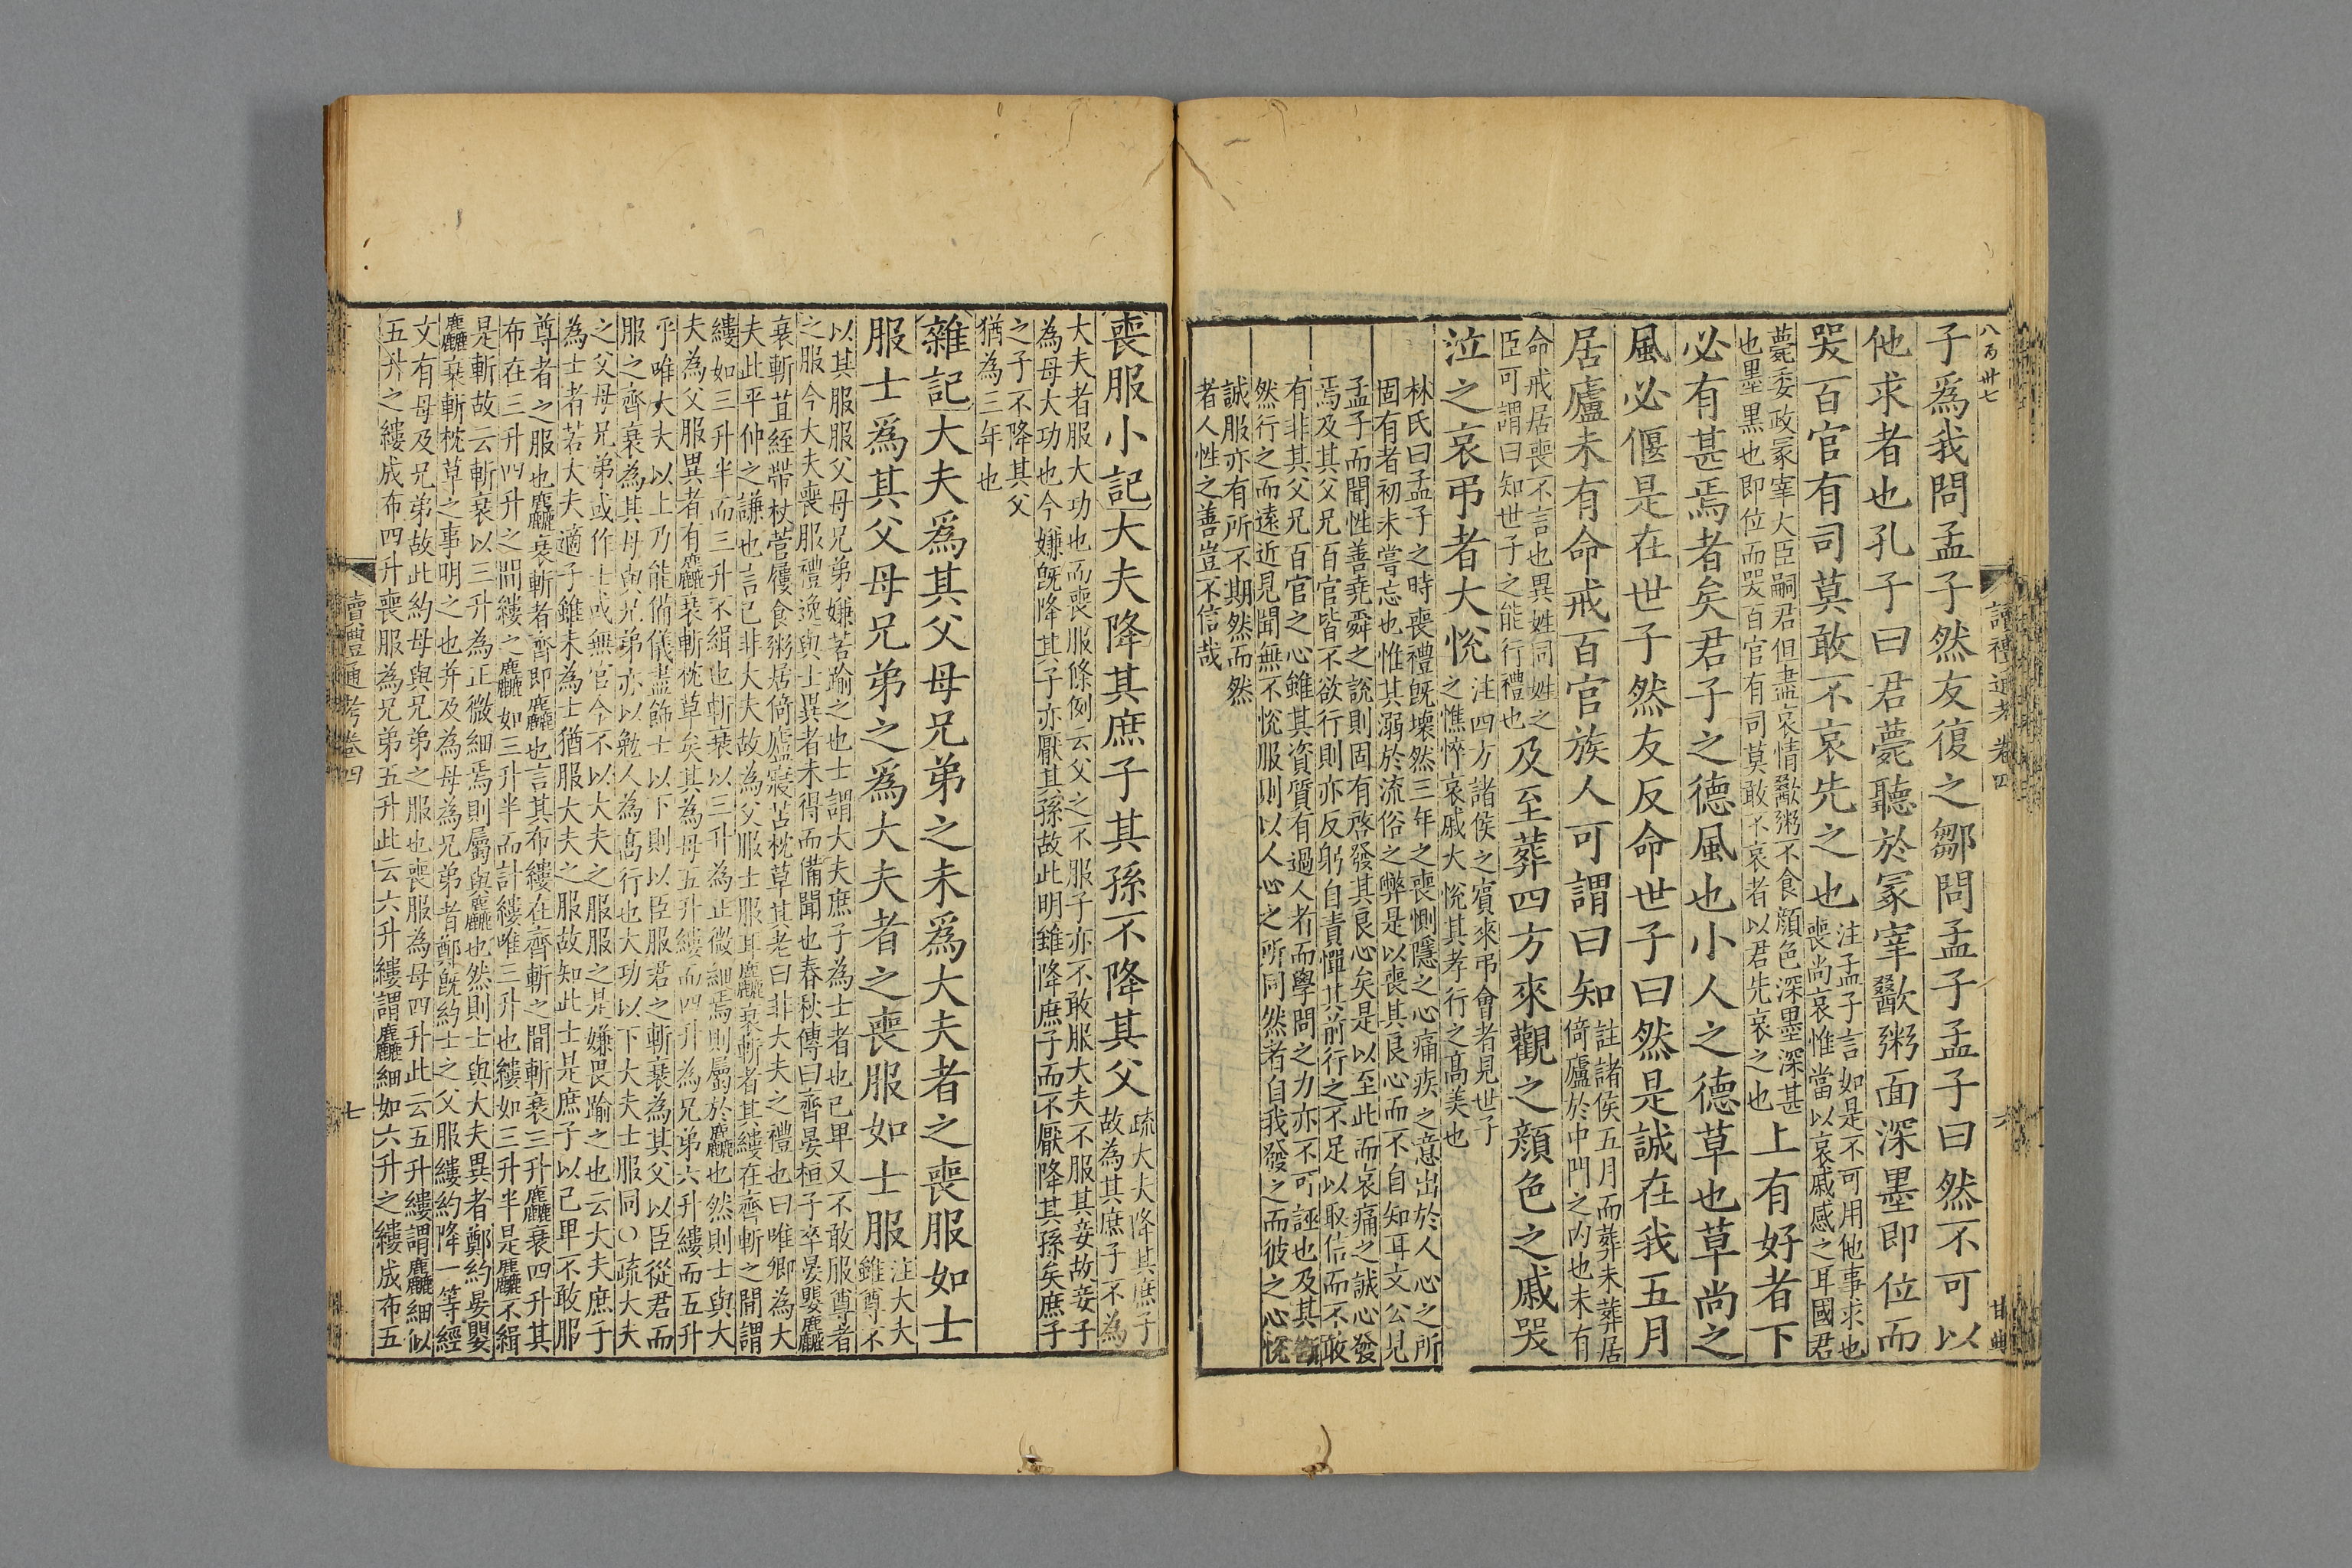 八百卅七
讀禮通考卷四
六
甘典
子爲我問孟子然友復之鄒問孟子孟子曰然不可以
他求者也孔子曰君薨聽於冢宰歠粥面深墨即位而
哭百官有司莫敢不哀先之也
注孟子言如是不可用他事求也
喪尚哀惟當以哀戚感之耳國君
薨委政冢宰大臣嗣君但盡哀情歠粥不食顔色深墨深甚
也墨黑也即位而哭百官有司莫敢不哀者以君先哀之也
上有好者下
必有甚焉者矣君子之德風也小人之德草也草尚之
風必偃是在世子然友反命世子曰然是誠在我五月
居廬未有命戒百官族人可謂曰知
註諸侯五月而葬未葬居
倚廬於中門之内也未有
命戒居喪不言也異姓同姓之
臣可謂曰知世子之能行禮也
及至葬四方來觀之顔色之戚哭
泣之哀弔者大悅
注四方諸侯之賓來弔會者見世子
之憔悴哀戚大悅其孝行之髙美也
林氏曰孟子之時喪禮旣壞然三年之喪惻隱之心痛疾之意出於人心之所
固有者初未嘗忘也惟其溺於流俗之弊是以喪其良心而不自知耳文公見
孟子而聞性善堯舜之說則固有啓發其良心矣是以至此而哀痛之誠心發
焉及其父兄百官皆不欲行則亦反躬自責憚其前行之不足以取信而不敢
有非其父兄百官之心雖其資質有過人者而學問之力亦不可誣也及其斷
然行之而遠近見聞無不悅服則以人心之所同然者自我發之而彼之心悅
誠服亦有所不期然而然
者人性之善豈不信哉
喪服小記大夫降其庶子其孫不降其父
疏大夫降其庶子
故為其庶子不為
大夫者服大功也而喪服條例云父之不服子亦不敢服大夫不服其妾故妾子
為母大功也今嫌旣降其子亦厭其孫故此明雖降庶子而不厭降其孫矣庶子
之子不降其父
猶為三年也
雜記大夫爲其父母兄弟之未爲大夫者之喪服如士
服士爲其父母兄弟之爲大夫者之喪服如士服
注大夫
雖尊不
以其服服父母兄弟嫌若踰之也士謂大夫庶子為士者也已卑又不敢服尊者
之服今大夫喪服禮逸與士異者未得而備聞也春秋傳曰齊晏桓子卒晏嬰麤
衰斬苴絰帶杖菅屨食粥居倚廬寢苫枕草其老曰非大夫之禮也曰唯卿為大
夫此平仲之謙也言已非大夫故為父服士服耳麤衰斬者其縷在齊斬之間謂
縷如三升半而三升不緝也斬衰以三升為正微細焉則屬於麤也然則士與大
夫為父服異者有麤衰斬枕草矣其為母五升縷而四升為兄弟六升縷而五升
乎唯大夫以上乃能備儀盡飾士以下則以臣服君之斬衰為其父以臣從君而
服之齊衰為其母與兄弟亦以勉人為髙行也大功以下大夫士服同○疏大夫
之父母兄弟或作士或無官今不以大夫之服服之是嫌畏踰之也云大夫庶子
為士者若大夫適子雖未為士猶服大夫之服故知此士是庶子以已卑不敢服
尊者之服也麤衰斬者齊即麤也言其布縷在齊斬之間斬衰三升麤衰四升其
布在三升四升之間縷之麤如三升半而計縷唯三升也縷如三升半是麤不緝
是斬故云斬衰以三升為正微細焉則屬與麤也然則士與大夫異者鄭約晏嬰
麤衰斬枕草之事明之也并及為母為兄弟者鄭旣約士之父服縷約降一等經
文有母及兄弟故此約母與兄弟之服也喪服為母四升此云五升縷謂麤細似
五升之縷成布四升喪服為兄弟五升此云六升縷謂麤細如六升之縷成布五
讀禮通考卷四
七